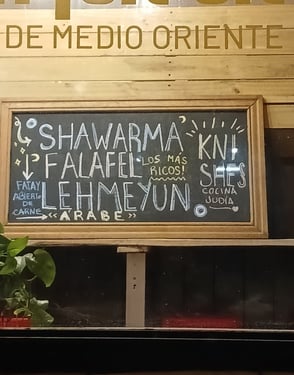 DE MEDIO ORIENTE
SHAWARMA
FALAFEL
LOS MÁS
RICOS!
LEHMEYUN
"ÁRABE"
FATAY
ABIERTO
DE
CARNE
KNI
SHES
COCINA
JUDÍA